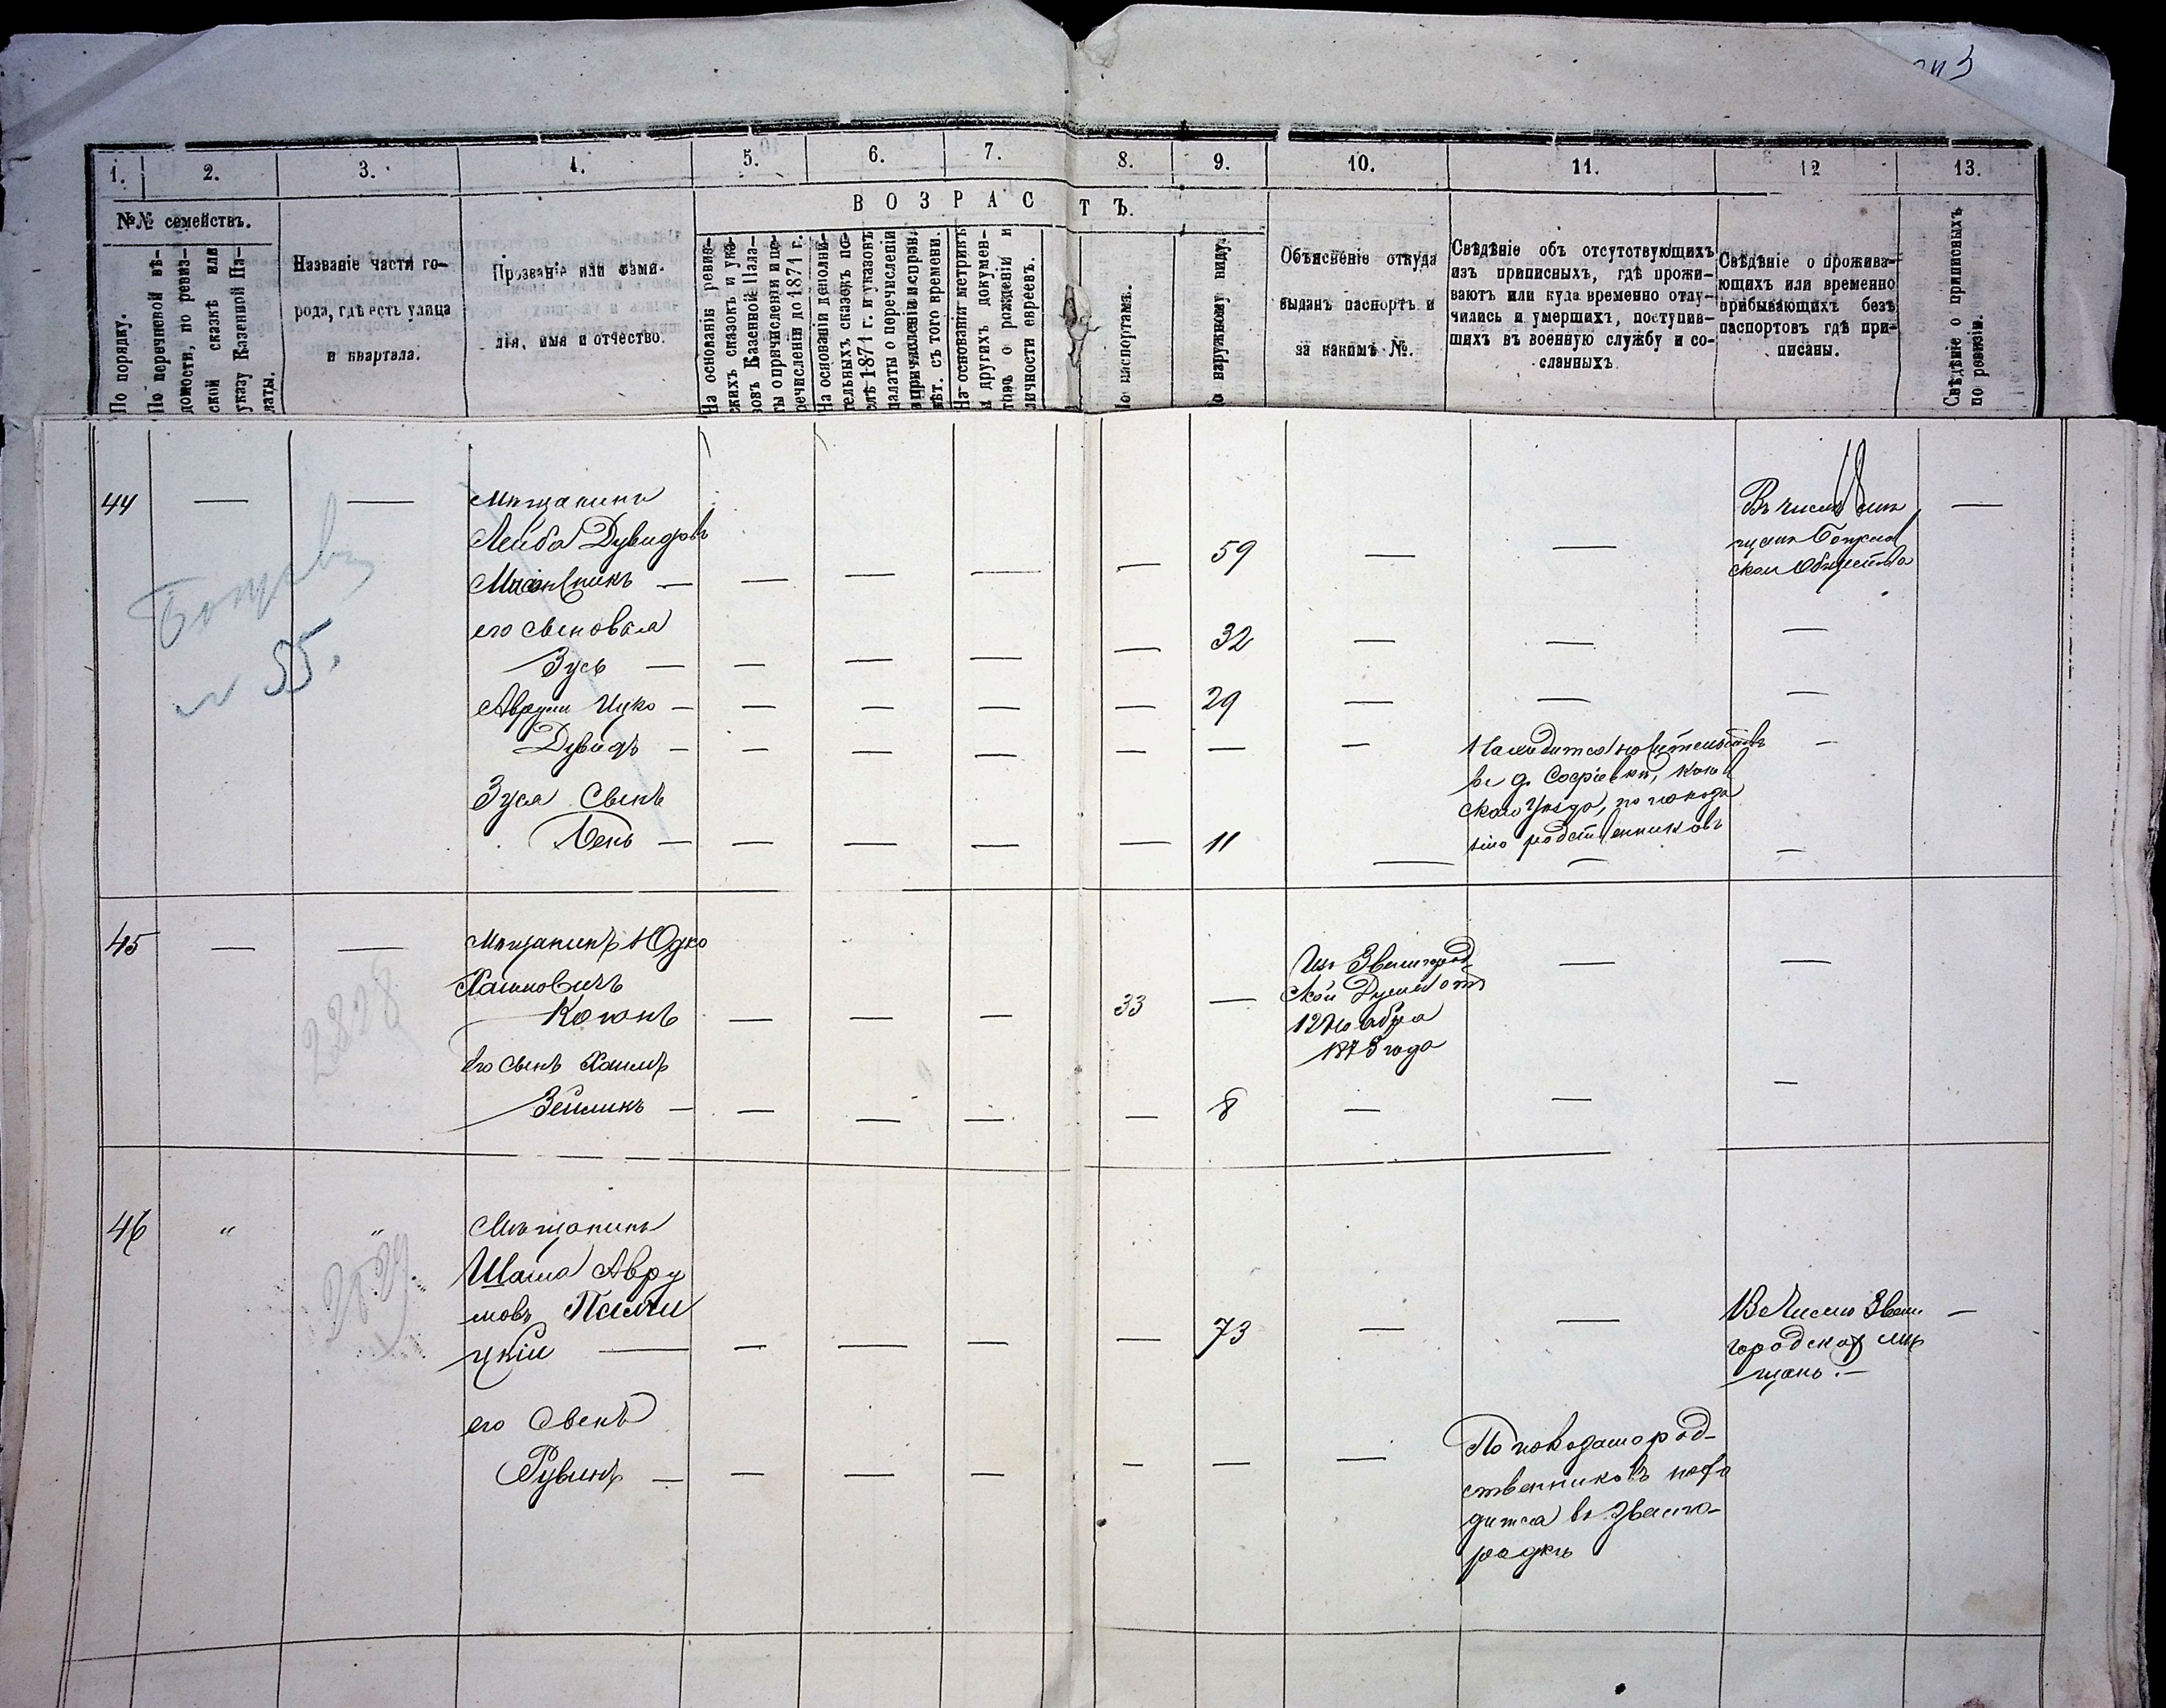 1. 2. 3. 4. 5. 6. 7. 8. 9. 10. 11. 12 13.
№№ семействъ.
В О З Р А С Т Ъ.
По порядку.
По перечневой вѣ-
домости, по ревиз-
ской сказкѣ или
указу Казенной Па-
латы.
Названіе части го-
рода, гдѣ есть улица
и квартала.
Прозваніе или фами-
лія, имя и отчество.
На основаніи ревиз-
скихъ сказокъ и ука-
зовъ Казенной Пала-
ты о причисленіи и пе-
речисленіи до 1871 г.
На основаніи дополни-
тельныхъ сказокъ по-
слѣ 1871 г. и указовъ
палаты о перечисленіи
и причисленіи и исправ.
лѣт. съ того времени.
На основаніи метрикъ
и другихъ докумен-
товъ о рожденіи и
личности евреевъ.
По паспортамъ.
По наружному виду.
Объясненіе откуда
выданъ паспортъ и
за какимъ №.
Свѣдѣніе объ отсутствующихъ
изъ приписныхъ, гдѣ прожи-
ваютъ или куда временно отлу-
чились и умершихъ, поступив-
шихъ въ военную службу и со-
сланныхъ
Свѣдѣніе о прожива-
ющихъ или временно
прибывающихъ безъ
паспортовъ гдѣ при-
писаны.
Свѣдѣніе о приписныхъ
по ревизіи.
44
Мѣщанинъ
Лейба Дувидовъ
59
его сыновья
Зусь — 32
Аврумъ Ицко — 29
Дувидъ —
Находится на жительствѣ
въ д. Софіевкѣ,
скаго уѣзда, по показа
нію родственниковъ
Зуся сынъ
Бень — 11
Въ числѣ мѣ
щанъ
скаго Общества
№ 55.
45
Мѣщанинъ Юдко
Хаимовичъ
Коганъ 33
Изъ Звенигород
ской Думы отъ
12 Ноября
1875 года
Его сынъ Хаимъ
Зейликъ — 8
2828
46 " "
Мѣщанинъ
Шама Авру
мовъ
цкій — 73
Въ числѣ Звени
городскихъ мѣ
щанъ. —
его Сынъ
Рувинъ —
По показанію род-
ственниковъ нахо
дится въ Звениго-
родкѣ
2829